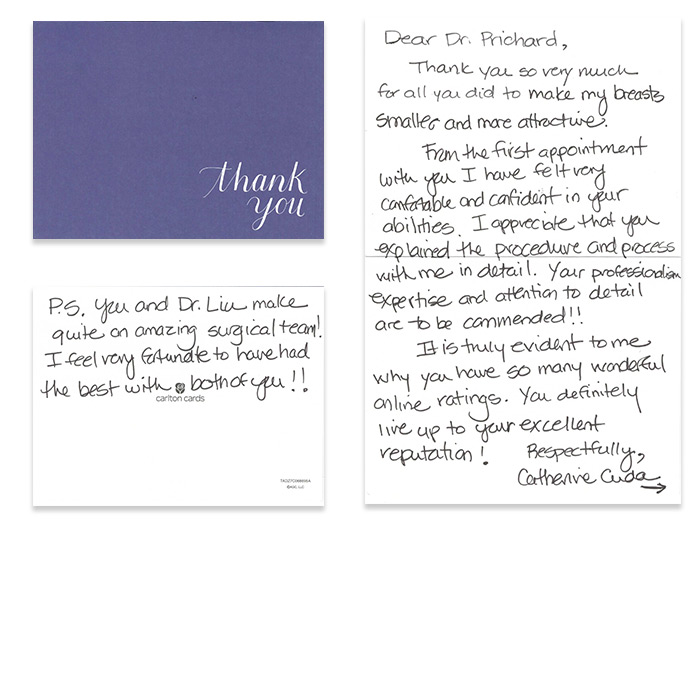 thank
you
Dear Dr. Prichard,
Thank you so very much
for all you did to make my breasts
smaller and more attractive.
From the first appointment
with you I have felt very
comfortable and confident in your
abilities. I appreciate that you
explained the procedure and process
with me in detail. Your professionalism
expertise and attention to detail
are to be commended!!
It is truly evident to me
why you have so many wonderful
online ratings. You definitely
live up to your excellent
reputation!
Respectfully,
Catherine Cuda
P.S. You and Dr. Liu make
quite an amazing surgical team!
I feel very fortunate to have had
the best with both of you!!
carlton cards